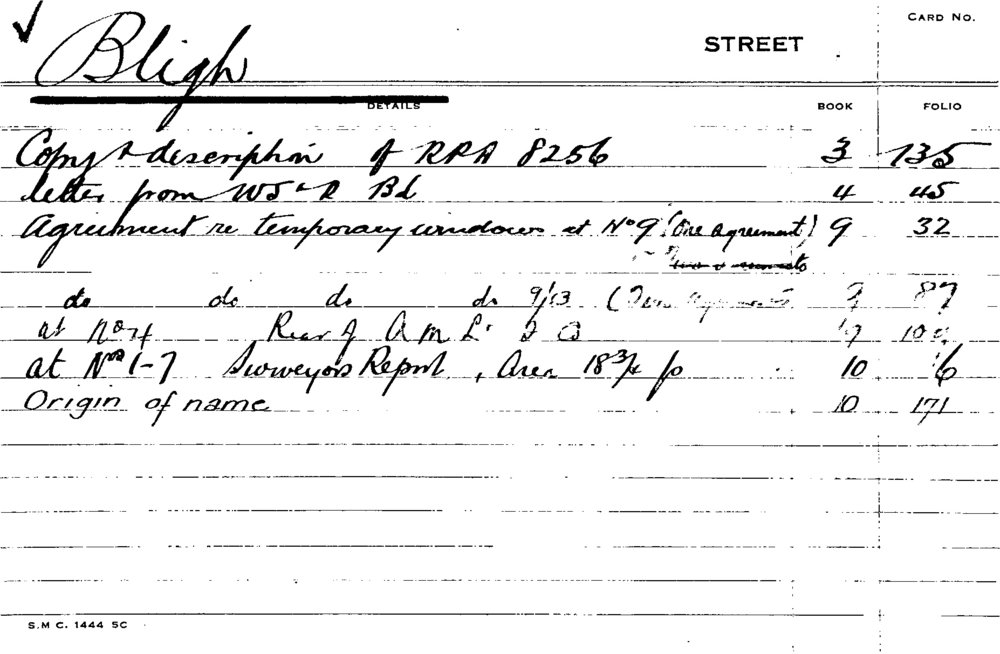 ✓ Bligh STREET CARD NO.
DETAILS BOOK FOLIO
Copy & description of RPA 8256 3 135
letter from WS & R Bd 4 45
Agreement re temporary windows at No 9 (One Agreement) 9 32
do do do do 9/13 (Two Agreements 9 87
at No 4 Rear of A M L
at Nos 1-7 Surveyors Report, Area 18 3/4 p 10 6
Origin of name 10 171
S.M C. 1444 5C